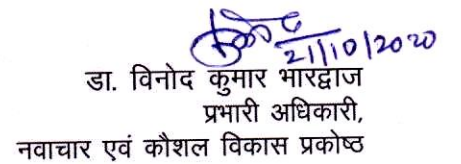 21/10/2020
डा. विनोद कुमार भारद्वाज
प्रभारी अधिकारी,
नवाचार एवं कौशल विकास प्रकोष्ठ